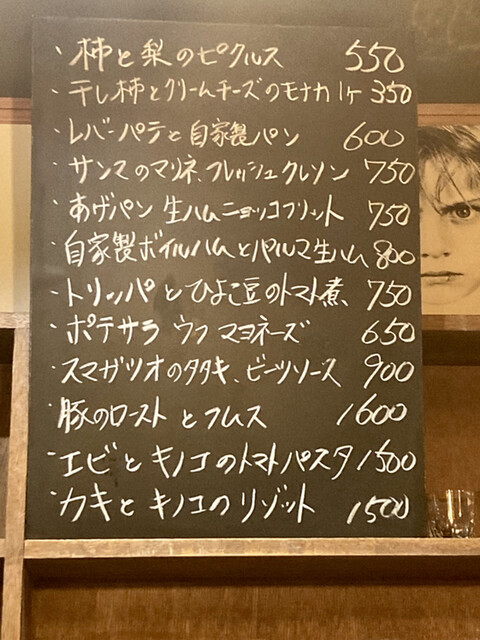 ・柿と梨のピクルス 550
・干し柿とクリームチーズのモナカ 1ヶ 350
・レバーパテと自家製パン 600
・サンマのマリネ、フレッシュクレソン 750
・あげパン 生ハムニョッコフリット 750
・自家製ボイルハムとパルマ生ハム 800
・トリッパとひよこ豆のトマト煮、 750
・ポテサラ ウフ マヨネーズ 650
・スマガツオのタタキ、ビーツソース 900
・豚のロースト とフムス 1600
・エビとキノコのトマトパスタ 1500
・カキとキノコのリゾット 1500